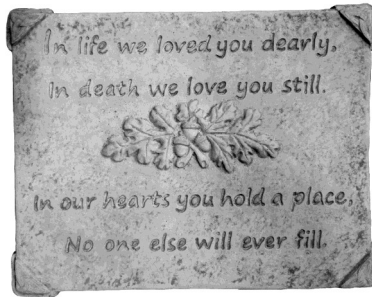 In life we loved you dearly,
In death we love you still.
In our hearts you hold a place,
No one else will ever fill.